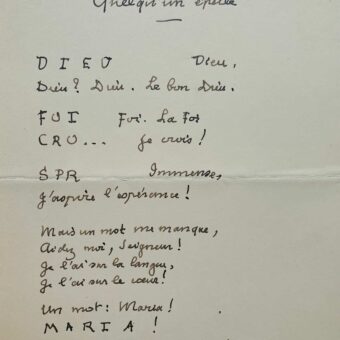 Quelqu'un épelle
D I E U Dieu,
Dieu? Dieu. Le bon Dieu.
F O I Foi. La Foi
CRO... Je crois!
S.P.R Immense,
J'aspire l'espérance!
Mais un mot me manque,
Aidez moi, Seigneur!
Je l'ai sur la langue,
Je l'ai sur le cœur!
Un mot: Maria!
M A R I A !